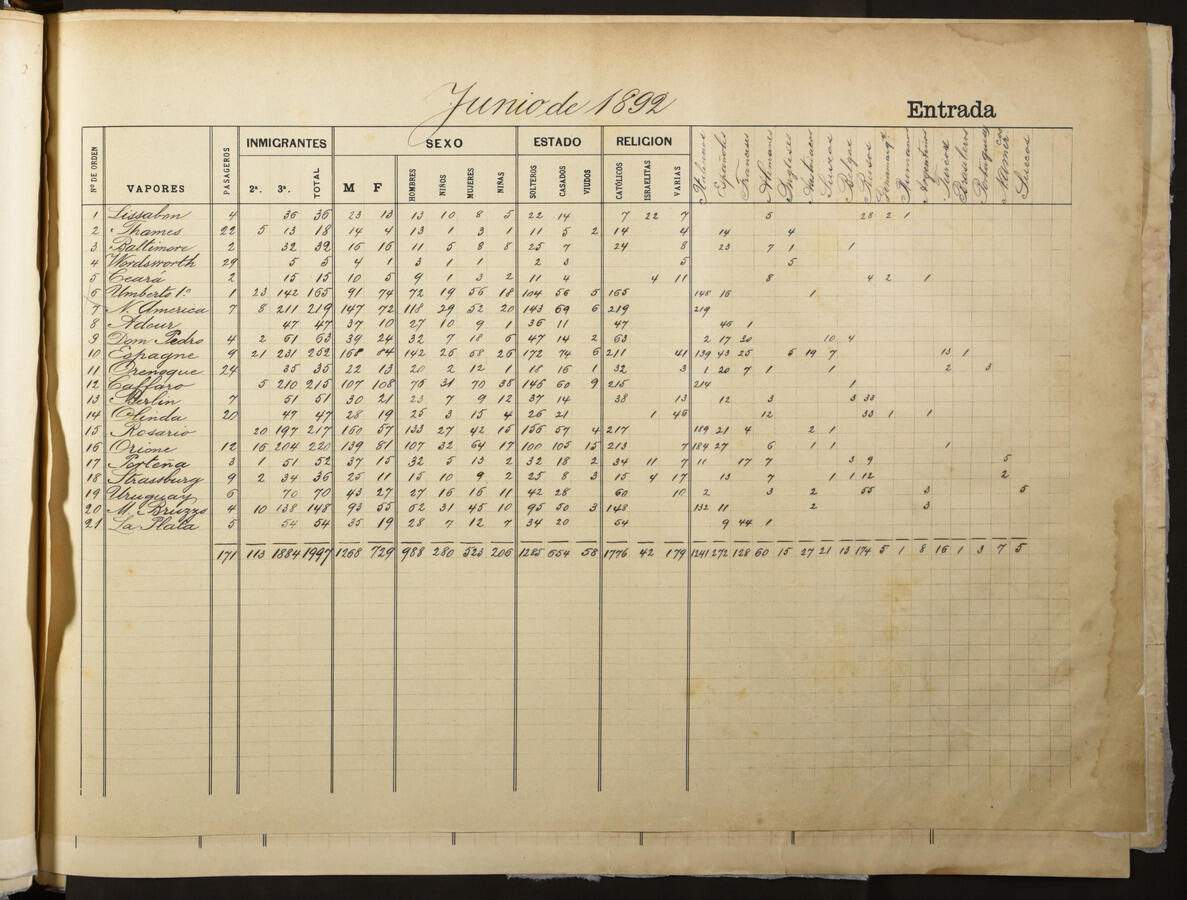 Junio de 1892
Entrada
Nº DE ORDEN VAPORES PASAGEROS INMIGRANTES 2ª. 3ª. TOTAL SEXO M F HOMBRES NIÑOS MUJERES NIÑAS ESTADO SOLTEROS CASADOS VIUDOS RELIGION CATÓLICOS ISRAELITAS VARIAS Italianos Españoles Franceses Alemanes Ingleses Austriacos Suizos Belgas Rusos Dinamarqs Rumanos Argentinos Turcos Brasileros Portugueses N. Amer cos Suecos
1 Lissabon 4 36 36 23 13 13 10 8 5 22 14 7 22 7 5 28 2 1
2 Thames 22 5 13 18 14 4 13 1 3 1 11 5 2 14 4 14 4
3 Baltimore 2 32 32 16 16 11 5 8 8 25 7 24 8 23 7 1 1
4 Wordsworth 29 5 5 4 1 3 1 1 2 3 5 5
5 Ceará 2 15 15 10 5 9 1 3 2 11 4 4 11 8 4 2 1
6 Umberto 1º 1 23 142 165 91 74 72 19 56 18 104 56 5 165 148 16 1
7 N. America 7 8 211 219 147 72 118 29 52 20 143 69 6 219 219
8 Adour 47 47 37 10 27 10 9 1 36 11 47 46 1
9 Dom Pedro 4 2 61 63 39 24 32 7 18 6 47 14 2 63 2 17 30 10 4
10 Espagne 9 21 231 252 168 84 142 26 58 26 172 74 6 211 41 139 43 25 5 19 7 13 1
11 Orenoque 24 35 35 22 13 20 2 12 1 18 16 1 32 3 1 20 7 1 1 2 3
12 Caffaro 5 210 215 107 108 76 31 70 38 146 60 9 215 214 1
13 Merlin 7 51 51 30 21 23 7 9 12 37 14 38 13 12 3 3 33
14 Olinda 20 47 47 28 19 25 3 15 4 26 21 1 46 12 33 1 1
15 Rosario 20 197 217 160 57 133 27 42 15 156 57 4 217 189 21 4 2 1
16 Orione 12 16 204 220 139 81 107 32 64 17 100 105 15 213 7 184 27 6 1 1 1
17 Porteña 3 1 51 52 37 15 32 5 13 2 32 18 2 34 11 7 11 17 7 3 9 5
18 Strassburg 9 2 34 36 25 11 15 10 9 2 25 8 3 15 4 17 13 7 1 1 12 2
19 Uruguay 6 70 70 43 27 27 16 16 11 42 28 60 10 2 3 2 55 3 5
20 M. Bruzzo 4 10 138 148 93 55 62 31 45 10 95 50 3 148 132 11 2 3
21 La Plata 5 54 54 35 19 28 7 12 7 34 20 54 9 44 1
171 113 1884 1997 1268 729 988 280 523 206 1285 654 58 1776 42 179 1241 272 128 60 15 27 21 13 174 5 1 8 16 1 3 7 5